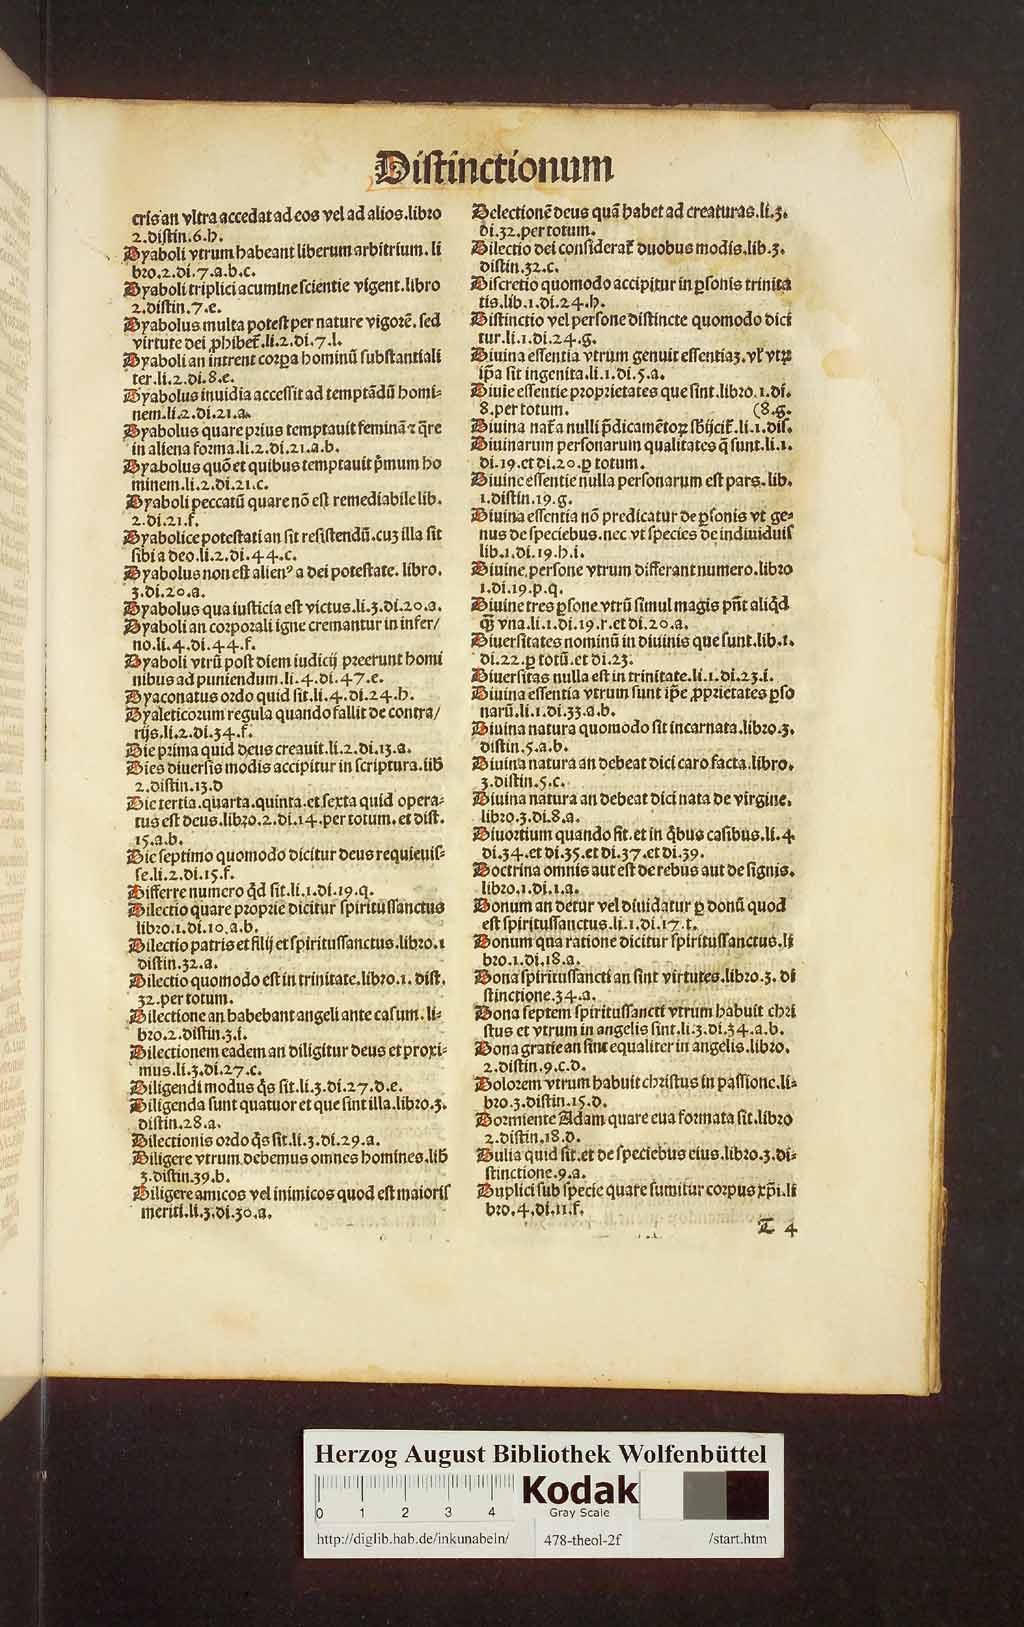 Distinctionum
cris an vltra accedat ad eos vel ad alios.libro
2.distin.6.h.
Dyaboli vtrum habeant liberum arbitrium.li
bro.2.di.7.a.b.c.
Dyaboli triplici acumine scientie vigent.libro
2.distin.7.e.
Dyabolus multa potest per nature vigorē. sed
virtute dei ꝓhibet᷑.li.2.di.7.l.
Dyaboli an intrent corꝑa hominū substantiali
ter.li.2.di.8.e.
Dyabolus inuidia accessit ad temptādū homi⸗
nem.li.2.di.21.a.
Dyabolus quare prius temptauit feminā ⁊ q̄re
in aliena forma.li.2.di.21.a.b.
Dyabolus quō et quibus temptauit p̄mum ho
minem.li.2.di.21.c.
Dyaboli peccatū quare nō est remediabile lib.
2.di.21.f.
Dyabolice potestati an sit resistendū.cuꝫ illa sit
sibi a deo.li.2.di.44.c.
Dyabolus non est alienꝰ a dei potestate. libro.
3.di.20.a.
Dyabolus qua iusticia est victus.li.3.di.20.a.
Dyaboli an corporali igne cremantur in infer/
no.li.4.di.44.f.
Dyaboli vtrū post diem iudicij preerunt homi
nibus ad puniendum.li.4.di.47.e.
Dyaconatus ordo quid sit.li.4.di.24.h.
Dyaleticorum regula quando fallit de contra/
rijs.li.2.di.34.f.
Die prima quid deus creauit.li.2.di.13.a.
Dies diuersis modis accipitur in scriptura.lib̄
2.distin.13.d
Die tertia.quarta.quinta.et sexta quid opera⸗
tus est deus.libro.2.di.14.per totum.et dist.
15.a.b.
Die septimo quomodo dicitur deus requieuis⸗
se.li.2.di.15.f.
Differre numero qd̄ sit.li.1.di.19.q.
Dilectio quare proprie dicitur spiritussanctus
libro.1.di.10.a.b.
Dilectio patris et filij et spiritussanctus.libro.1
distin.32.a.
Dilectio quomodo est in trinitate.libro.1. dist.
32.per totum.
Dilectione an habebant angeli ante casum. li⸗
bro.2.distin.3.i.
Dilectionem eadem an diligitur deus et proxi⸗
mus.li.3.di.27.c.
Diligendi modus q̄s sit.li.3.di.27.d.e.
Diligenda sunt quatuor et que sint illa.libro.3.
distin.28.a.
Dilectionis ordo q̄s sit.li.3.di.29.a.
Diligere vtrum debemus omnes homines.lib̄
3.distin.39.b.
Diligere amicos vel inimicos quod est maioris
meriti.li.3.di.30.a.
Delectionē deus quā habet ad creaturas.li.3.
di.32.per totum.
Dilectio dei considerat᷑ duobus modis.lib.3.
distin.32.c.
Discretio quomodo accipitur in ꝑsonis trinita
tis.lib.1.di.24.h.
Distinctio vel persone distincte quomodo dici
tur.li.1.di.24.g.
Diuina essentia vtrum genuit essentiaꝫ.vl᷑ vtrꝫ
ip̄a sit ingenita.li.1.di.5.a.
Diuie essentie proprietates que sint.libro.1.di.
8.per totum. (8.g.
Diuina nat᷑a nulli p̄dicamētoꝝ sb̄ijcit᷑.li.1.dis.
Diuinarum personarum qualitates q̄ sunt.li.1.
di.19.et di.20.ꝑ totum.
Diuine essentie nulla personarum est pars.lib.
1.distin.19.g.
Diuina essentia nō predicatur de ꝑsonis vt ge⸗
nus de speciebus.nec vt species de indiuiduis
lib.1.di.19.h.i.
Diuine persone vtrum differant numero.libro
1.di.19.p.q.
Diuine tres ꝑsone vtrū simul magis pn̄t aliqd̄
qꝫ̄ vna.li.1.di.19.r.et di.20.a.
Diuersitates nominū in diuinis que sunt.lib.1.
di.22.ꝑ totū.et di.23.
Diuersitas nulla est in trinitate.li.1.di.23.i.
Diuina essentia vtrum sunt ip̄e ꝓprietates ꝑso
narū.li.1.di.33.a.b.
Diuina natura quomodo sit incarnata.libro.3.
distin.5.a.b.
Diuina natura an debeat dici caro facta.libro.
3.distin.5.c.
Diuina natura an debeat dici nata de virgine.
libro.3.di.8.a.
Diuortium quando fit.et in qb̄us casibus.li.4
di.34.et di.35.et di.37.et di.39.
Doctrina omnis aut est de rebus aut de signis.
libro.1.di.1.a.
Donum an detur vel diuidatur ꝑ donū quod
est spiritussanctus.li.1.di.17.t.
Donum qua ratione dicitur spiritussanctus.li
bro.1.di.18.a.
Dona spiritussancti an sint virtutes.libro.3. di
stinctione.34.a.
Dona septem spiritussancti vtrum habuit chri
stus et vtrum in angelis sint.li.3.di.34.a.b.
Dona gratie an sint equaliter in angelis.libro.
2.distin.9.c.d.
Dolorem vtrum habuit christus in passione.li⸗
bro.3.distin.15.d.
Dormiente Adam quare eua formata sit.libro
2.distin.18.d.
Dulia quid sit.et de speciebus eius.libro.3.di⸗
stinctione.9.a.
Duplici sub specie quare sumitur corpus xp̄i.li
bro.4.di.11.f.
T 4
Herzog August Bibliothek Wolfenbüttel
0 1 2 3 4
Kodak
Gray Scale
http://diglib.hab.de/inkunabeln/ 478-theol-2f /start.htm